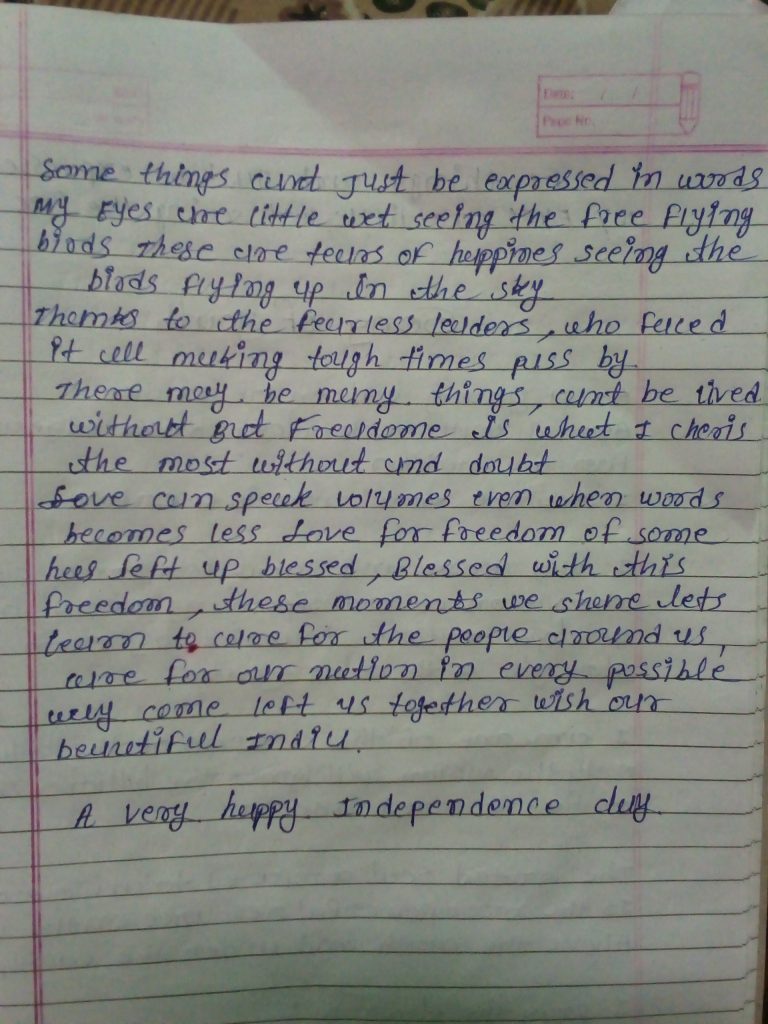 Date: / /
Page No.
Some things cant just be expressed in words
My Eyes are little wet seeing the free flying
birds these are tears of happines seeing the
birds flying up in the sky
Thanks to the fearless leaders, who faced
it all making tough times pass by.
There may be many things, cant be lived
without But Freedome is what I cheris
the most without and doubt
Love can speak volumes even when words
becomes less Love for freedom of some
has left up blessed, Blessed with this
freedom, these moments we share lets
learn to care for the people around us,
care for our nation in every possible
way come left us together wish our
beautiful India.
A very happy Independence day.